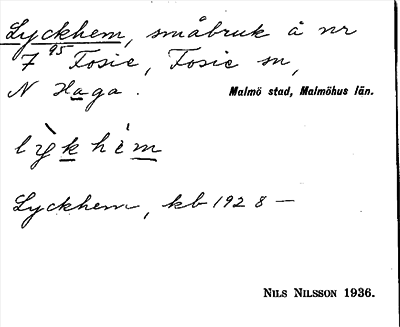 Lyckhem, småbruk å nr
7⁹⁵ Fosie, Fosie sn,
N Haga. Malmö stad, Malmöhus län.
lỳkhèm
Lyckhem, kb 1928 —
NILS NILSSON 1936.